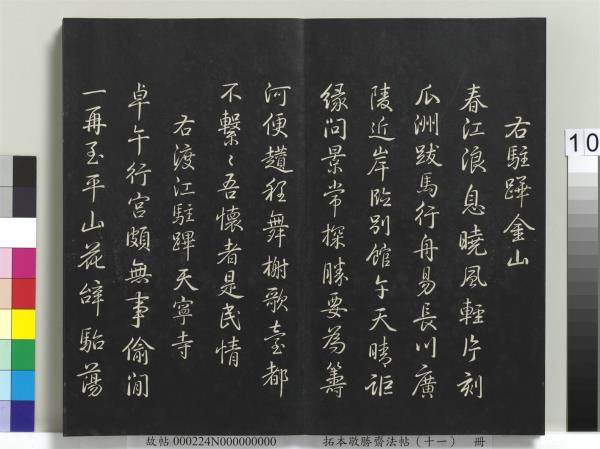 右駐蹕金山
春江浪息曉風輕片刻
瓜洲跋馬行舟易長川廣
陵近岸臨別館午天晴詎
緣問景常探勝要為籌
河便趲程舞榭歌臺都
不繫〻吾懷者是民情
右渡江駐蹕天寧寺
卓午行宮頗無事偷閒
一再至平山花辭駘蕩
10
故帖 000224N000000000 拓本敬勝齋法帖（十一） 冊